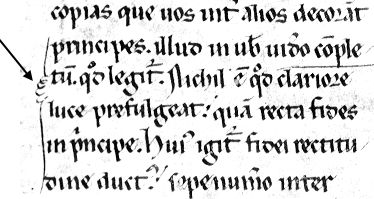 copias que uos int̄ alios decorāt
principes. illud in uob̄ uideo cōple
tū. qd̓ legit̄. Nichil ē qd̓ clariore
luce prefulgeat quā recta fides
in p̓ncipe. Hui᷒ igit̄ fidei rectitu
dine duct᷒ sepenum̄o inter